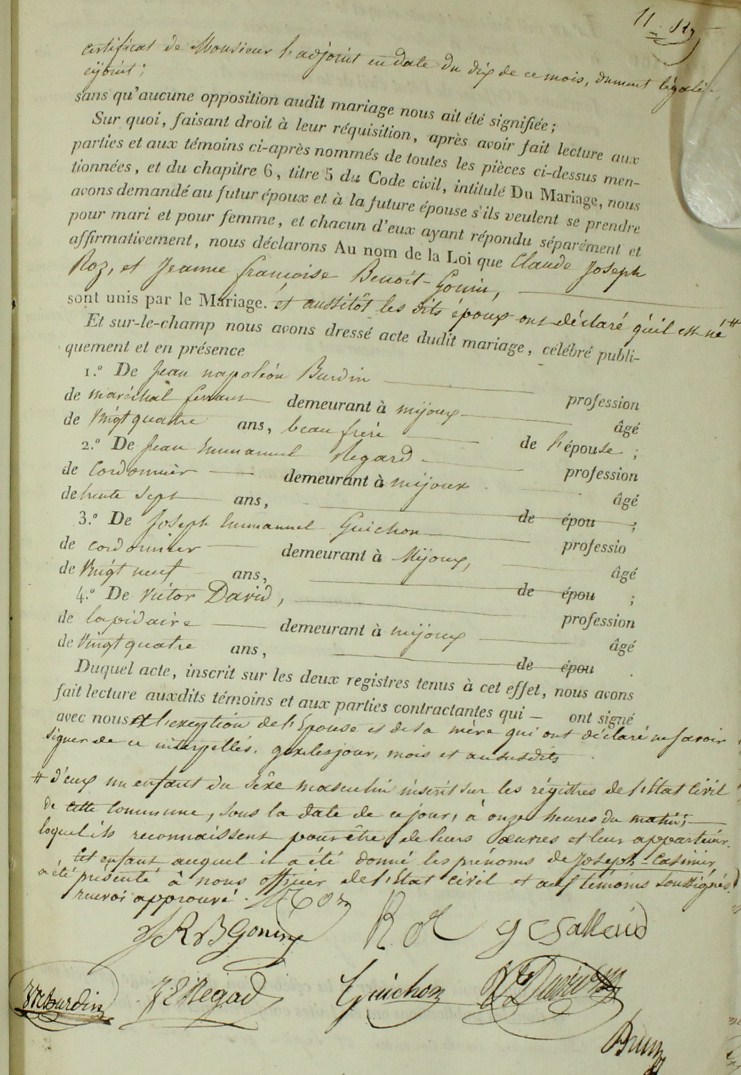 11.
certificat de Monsieur l'adjoint en date du dix de ce mois, dument légalisé
cijoint;
sans qu'aucune opposition audit mariage nous ait été signifiée;
Sur quoi, faisant droit à leur réquisition, après avoir fait lecture aux
parties et aux témoins ci-après nommés de toutes les pièces ci-dessus men-
tionnées, et du chapitre 6, titre 5 du Code civil, intitulé Du Mariage, nous
avons demandé au futur époux et à la future épouse s'ils veulent se prendre
pour mari et pour femme, et chacun d'eux ayant répondu séparément et
affirmativement, nous déclarons Au nom de la Loi que Claude Joseph
Roz, et Jeanne françoise Benoit-Gonin,
sont unis par le Mariage. et aussitôt les dits époux ont déclaré qu'il est né #
Et sur-le-champ nous avons dressé acte dudit mariage, célébré publi-
quement et en présence
1.° De Jean napoléon Burdin profession
de maréchal ferrant demeurant à mijoux âgé
de Vingt quatre ans, beau frère de l'épouse;
2.° De Jean Emmanuel Regard profession
de Cordonnier demeurant à mijoux âgé
de trente sept ans, de épou ;
3.° De Joseph Emmanuel Guichon professio
de cordonnier demeurant à Mijoux, âgé
de Vingt neuf ans, de épou ;
4.° De Victor David, profession
de lapidaire demeurant à mijoux âgé
de Vingt quatre ans, de épou .
Duquel acte, inscrit sur les deux registres tenus à cet effet, nous avons
fait lecture auxdits témoins et aux parties contractantes qui – ont signé
avec nous à l'exception de l'Epouse et de sa mère qui ont déclaré ne savoir
signer de ce interpellés. jour, mois et an susdits
# d'eux un enfant du Sexe masculin inscrit sur les régistres de l'Etat Civil
de cette Commune, sous la date de ce jour, à onze heures du matin;
lequel ils reconnaissent pour être de leurs œuvres et leur appartenir.
cet enfant auquel il a été donné les prenoms de Joseph Casimir
a été présenté à nous officier de l'Etat Civil et aux témoins Soussignés
renvoi approuvé.
Gonin Roz
Burdin J E Regad Guichon David
Brun